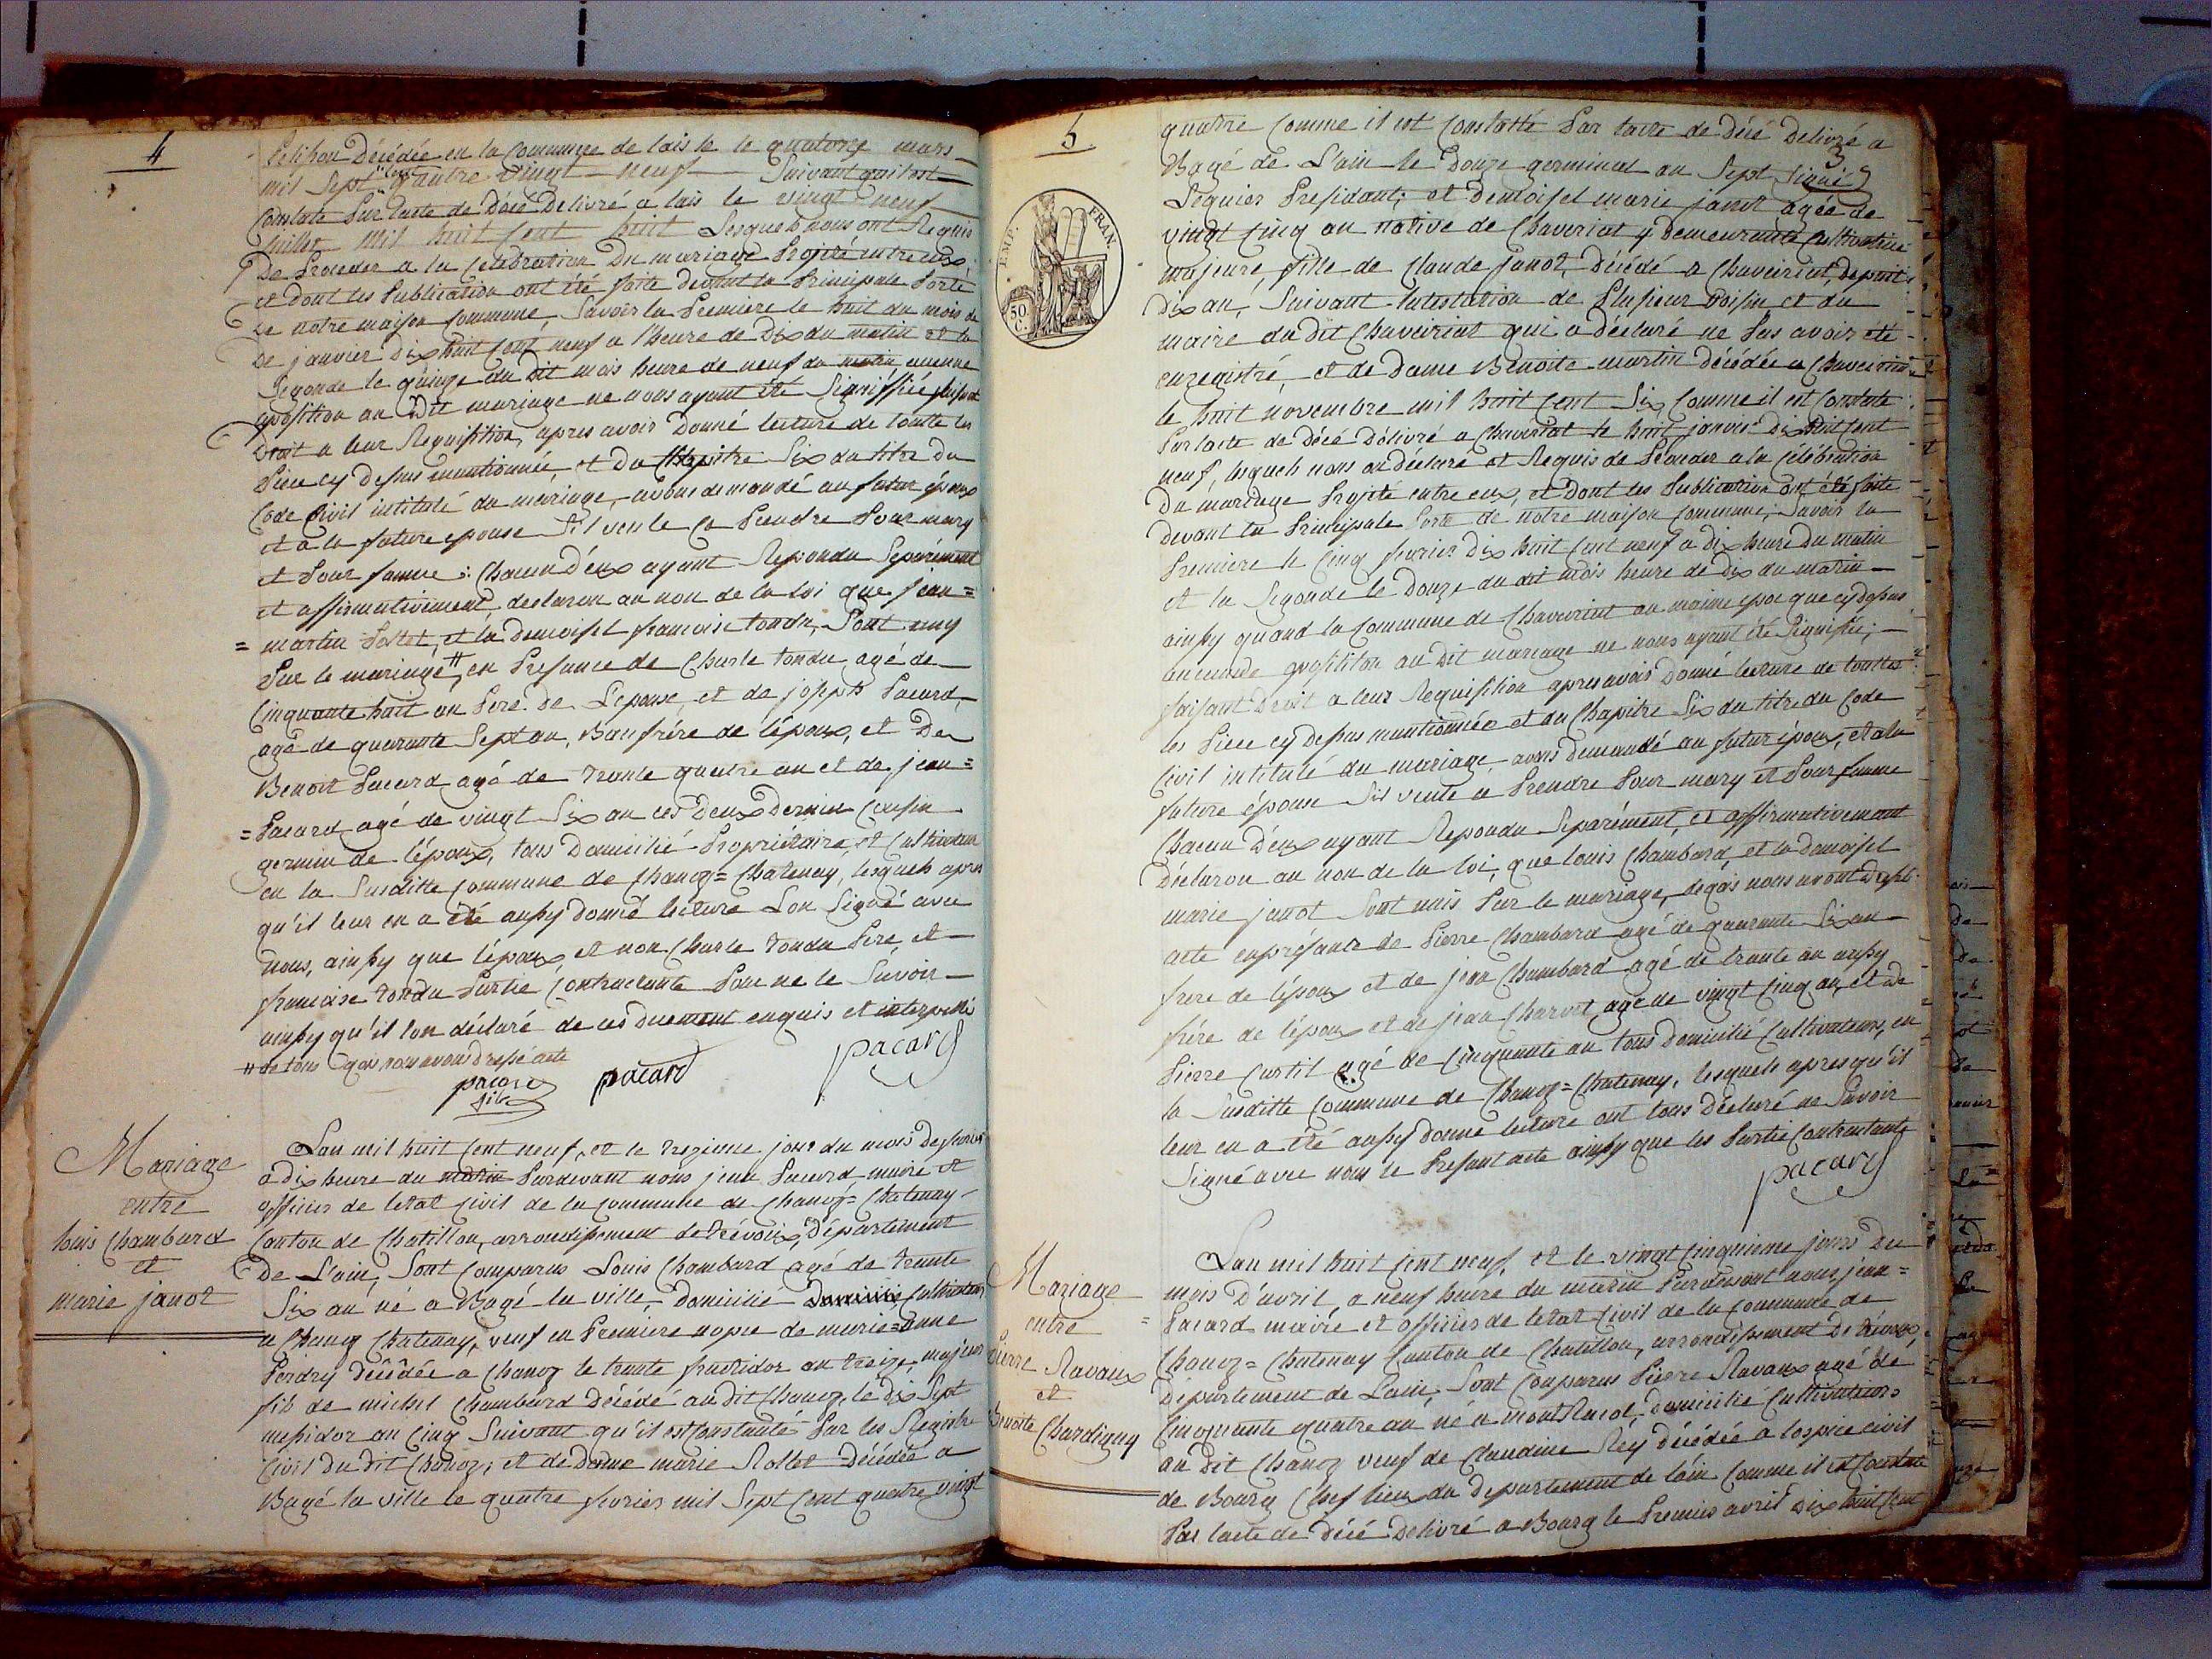 4
Petihou Décédée en la Commune de lais le le quatorze mars
mil Sept "cent" quatre vingt neuf Suivant qu'il est
Constaté Par lacte de Décé Delivré a lais le vingt neuf
Juillet mil huit Cent huit Lesquels nous ont Requis
De Proceder a la Celébration Du mariage Projeté entre eux
et Dont les Publication ont été faite Devant la Principale Porte
de notre maison Commune, Savoir la Premiere le huit du mois de
De janvier Dix huit Cent neuf a l'heure de Dix du matin et la
Segonde le quinze du dit mois heure de neuf du matin aucune
oposition au Dit mariage ne nous ayant été Signiffiée faisant
Droit a leur Requisition, apres avoir Donné lecture de toutte les
Piece cy dessus mentionnée, et Du Chapitre Six du titre Du
Code Civil intitulé du mariage, avons demandé au futur époux
et a la future epouse S'il veule Ce Prendre Pour mary
et Pour famme : Chacun d'eux ayant Repondu Separément
et affirmativement, declaron au non de la Loi que jean=
= martin Poset, et la demoisel francoise tondu, Sont uny
Par le mariage, " en Presance de Charle tondu, agé de
Cinquante huit an Pere de Lepouse, et de joseph Pacard,
agé de quarante Sept an, Baufrére de l'époux, et De
Benoit Pacard agé de trante quatre an et de jean=
= Pacard agé de vingt Six an ces Deux Dernier Cousin
germin de l'époux, tous Domicilié Propriétaire, et Cultivateur
en la Susditte Commune de Chanoz=Chatenay, lesquels apres
qu'il leur en a été aussy donné lecture L'on Signé avec
nous, ainssy que l'époux, et non Charle tondu Pere, et
francoise tondu Partie Contractante Pour ne le Savoir
ainssy qu'il l'on déclaré de ces duement enquis et interpellé
" de tous quoi nous avons dressé acte
pacard
fils
pacard
pacard
Mariage
entre
louis Chambard
et
marie janot
Lan mil huit Cent neuf, et le trezieme jour du mois de fevrier
a dix heure du matin Pardevant nous jean Pacard, maire et
officier de letat Civil de la Commune de Chanoz=Chatenay
Canton de Chatillon, arrondissement de trévoux, département
De L'ain, Sont Comparus Louis Chambard agé de trante
Six an né a Bagé la ville, domicilié Cultivateur
a Chanoz Chatenay, veuf en Premiere nopce de marie=anne
Perdry décédée a Chanoz le trante fructidor an treize, majeur
fils de michel Chambard Décédé au dit Chanoz, le dix Sept
messidor an Cinq Suivant qu'il est Constaté Par les Registre
Civil du dit Chanoz ; et de Dame marie Rollet Décédée a
Bagé la ville le quatre fevrier mil Sept Cent quatre vingt
5
3
EMP. FRAN.
50 C.
quatre Comme il est Constatté Par lacte de décé Delivré a
Bagé de L'ain le Douze germinal an Sept Signé
Seguier Président ; et demoisel marie janot agée de
vingt Cinq an native de Chaveriat y demeurante Cultivatrice
majeure, fille de Claude janot, Décédé a Chaveiriat, depuit
Dix an, Suivant latestation de Plusieur voisin et du
maire du dit Chaveiriat qui a déclaré ne Pas avoir été
enregistré, et de dame Benoite martin décédée a Chaveiriat
le huit novembre mil huit Cent Six Comme il est Constaté
Par lacte de décé Délivré a Chaveriat le huit janvier Dix huit Cent
neuf, lesquels nous on déclaré et Requis de Proceder a la Celébration
Du mariage Projeté entre eux, et Dont les Publication ont été faite
devant la Principale Porte de notre maison Commune, Savoir la
Premiere le Cinq fevrier Dix huit Cent neuf a dix heure du matin
et la Segonde le Douze du dit mois heure de Dix du matin
ainssy quand la Commune de Chaveiriat au maime epoque cy dessus
aucune oposition au Dit mariage ne nous ayant été Signifiée ;
faisant Droit a leur Requisition apres avoir Donné lecture de touttes
les Piece cy dessus mentionnées et du Chapitre Six du titre du Code
Civil intitulé du mariage, avons demandé au futur époux, et a la
future épouse S'il veule ce Prendre Pour mary et Pour famme
Chacun D'eux ayant Repondu Separément, et affirmativemant
Déclaron au non de la Loi, que louis Chambard, et la demoisel
marie janot Sont unis Par le mariage, de quoi nous avont dressé
acte en présance de Pierre Chambard agé de quarante Six an
frere de l'époux et de jean Chambard agé de trante an aussy
frére de l'époux et de jean Charvet agé de vingt Cinq an, et de
Pierre Curtil agé de Cinquante an tous domicilié Cultivateur, en
la Susditte Commune de Chanoz=Chatenay, lesquels apres qu'il
leur en a été aussy donné lecture ont tous Déclaré ne Savoir
Signé avec nous le Présent acte ainssy que les Partie Contractante
pacard
Mariage
entre
Pierre Ravaux
et
Benoite Chardigny
Lan mil huit Cent neuf, et le vingt Cinquieme jour Du
mois D'avril, a neuf heure du matin Pardevant nous jean=
= Pacard maire et officier de letat Civil de la Commune de
Chanoz=Chatenay Canton de Chatillon, arrondissement de trévoux,
département de Lain, Sont Comparus Pierre Ravaux agé de
Cinquante quatre an né a montRacol, domicilié Cultivateur
au Dit Chanoz veuf de Claudine Rey décédée a lospice Civil
de Bourg Chef lieu du departement de lain Comme il est Constaté
Par lacte de décé Delivré a Bourg le Premier avril Dix huit Cent